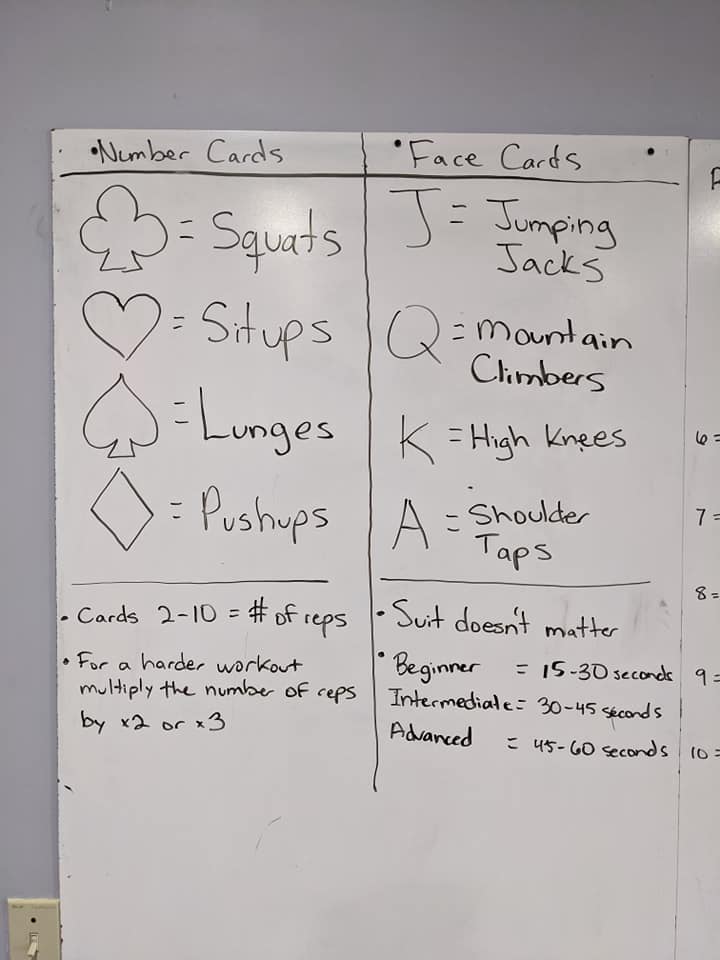 •Number Cards
♣ = Squats
♥ = Situps
♠ = Lunges
♦ = Pushups
• Cards 2-10 = # of reps
• For a harder workout
multiply the number of reps
by x2 or x3
•Face Cards
J = Jumping
Jacks
Q = Mountain
Climbers
K = High Knees
A = Shoulder
Taps
• Suit doesn't matter
• Beginner = 15-30 seconds
Intermediate = 30-45 seconds
Advanced = 45-60 seconds
6 =
7 =
8 =
9 =
10 =